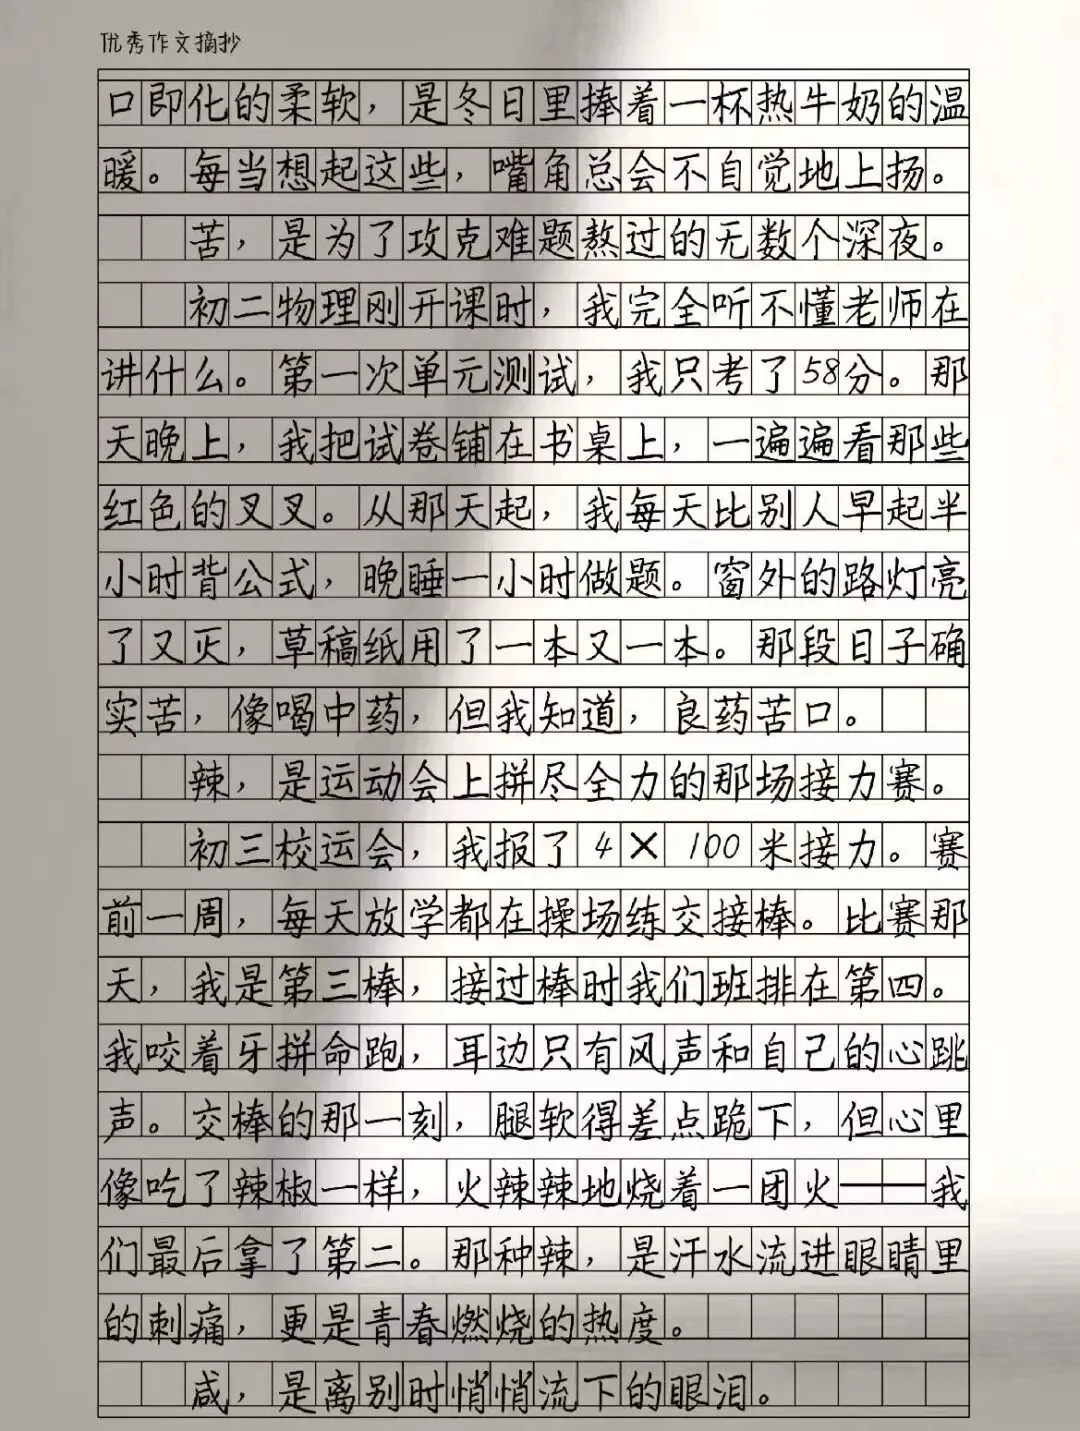 优秀作文摘抄
口即化的柔软，是冬日里捧着一杯热牛奶的温
暖。每当想起这些，嘴角总会不自觉地上扬。
苦，是为了攻克难题熬过的无数个深夜。
初二物理刚开课时，我完全听不懂老师在
讲什么。第一次单元测试，我只考了58分。那
天晚上，我把试卷铺在书桌上，一遍遍看那些
红色的叉叉。从那天起，我每天比别人早起半
小时背公式，晚睡一小时做题。窗外的路灯亮
了又灭，草稿纸用了一本又一本。那段日子确
实苦，像喝中药，但我知道，良药苦口。
辣，是运动会上拼尽全力的那场接力赛。
初三校运会，我报了4×100米接力。赛
前一周，每天放学都在操场练交接棒。比赛那
天，我是第三棒，接过棒时我们班排在第四。
我咬着牙拼命跑，耳边只有风声和自己的心跳
声。交棒的那一刻，腿软得差点跪下，但心里
像吃了辣椒一样，火辣辣地烧着一团火——我
们最后拿了第二。那种辣，是汗水流进眼睛里
的刺痛，更是青春燃烧的热度。
咸，是离别时悄悄流下的眼泪。